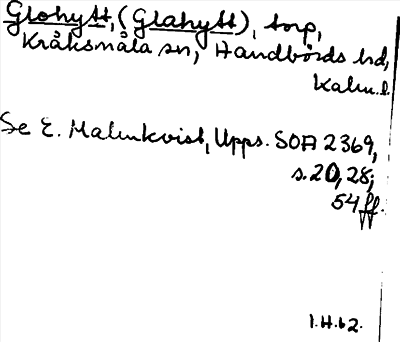 Glohytt, (Glahytt), torp,
Kråksmåla sn, Handbörds hd,
Kalm. l.
Se E. Malmkvist, Upps. SOA 2369,
s. 20, 28;
54 ff.
1.H.62.